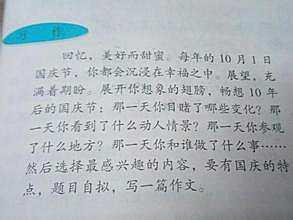 习作
回忆，美好而甜蜜。每年的 10 月 1 日
国庆节，你都会沉浸在幸福之中。展望，充
满着期盼。展开你想象的翅膀，畅想 10 年
后的国庆节：那一天你目睹了哪些变化？那
一天你看到了什么动人情景？那一天你参观
了什么地方？那一天你和谁做了什么事……
然后选择最感兴趣的内容，要有国庆的特
点，题目自拟，写一篇作文。